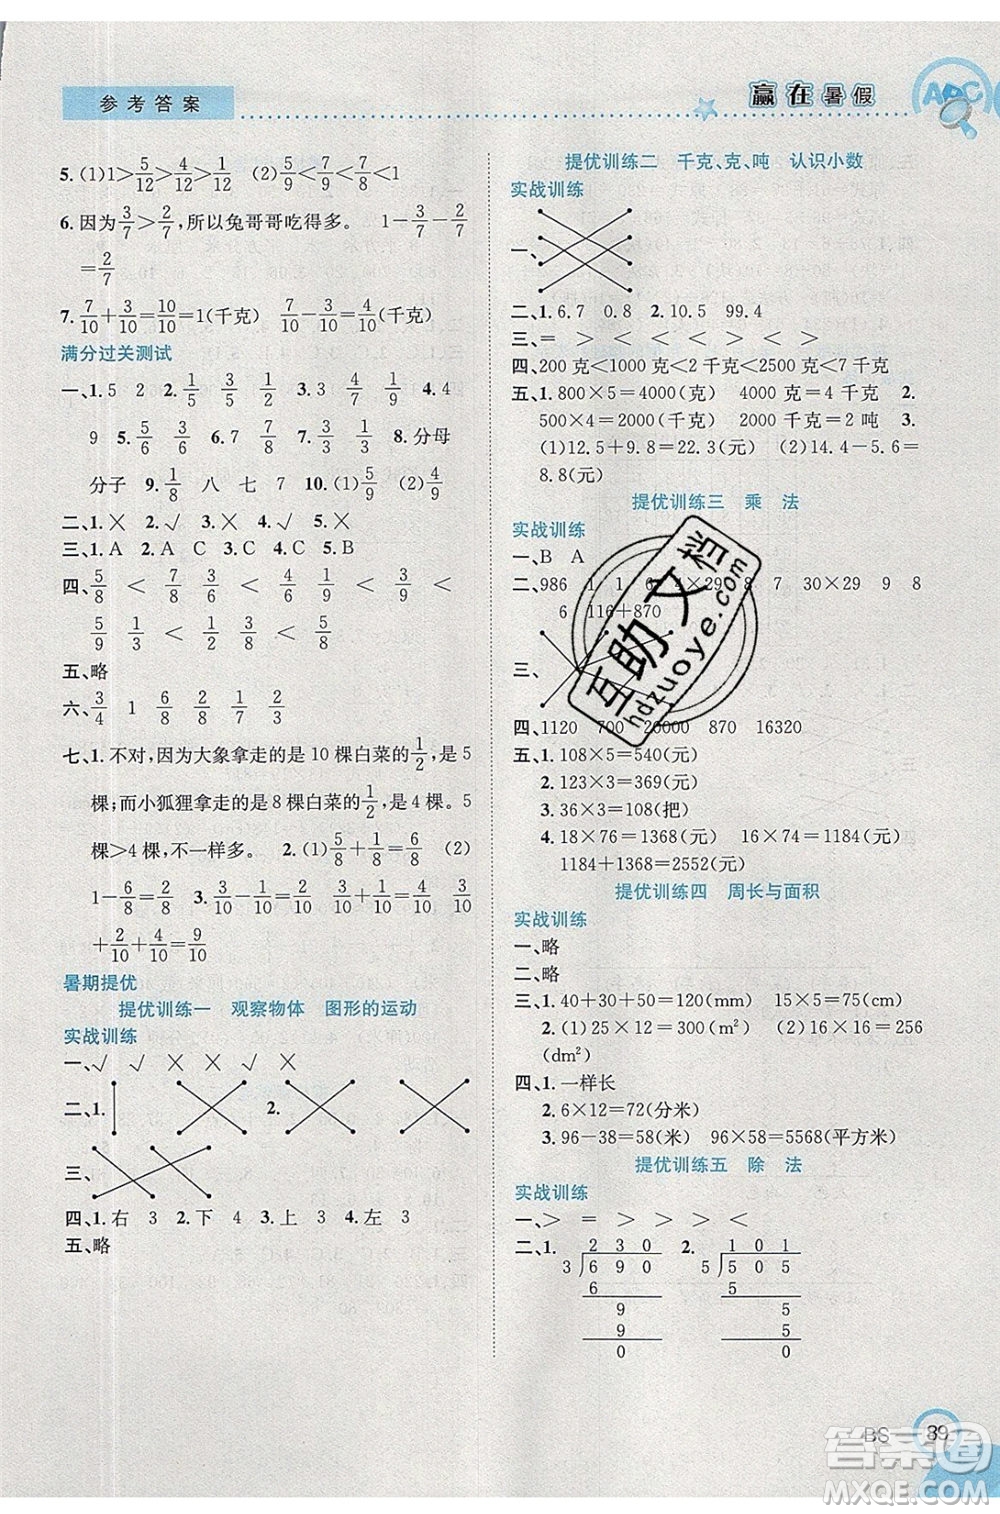 参考答案
赢在暑假
ABC
5. (1)1>5/12>4/12>1/12 (2)5/9<7/9<8/9<1
6. 因为3/7>2/7,所以兔哥哥吃得多。 1-3/7-2/7
=2/7
7. 7/10+3/10=10/10=1(千克) 7/10-3/10=4/10(千克)
满分过关测试
一、1. 5 2 2. 1/5 3/5 1/2 1/2 3. 4 4. 2
9 5. 5/6 1/6 6. 7 7/8 7. 3/3 1/3 8. 分母
分子 9. 1/8 八 七 7 10. (1)5/9 (2)4/9
二、1. × 2. √ 3. × 4. × 5. ×
三、1. A 2. A C 3. C 4. C 5. B
四、5/8 < 7/8 3/8 > 2/8 3/4 > 2/4
5/9 1/3 < 1/2 3/8 < 5/8
五、略
六、3/4 1 6/8 2/8 2/8 7/8
七、1. 不对,因为大象拿走的是10棵白菜的1/2,是5
棵;而小狐狸拿走的是8棵白菜的1/2,是4棵。5
棵>4棵,不一样多。 2. (1)5/8+1/8=6/8 (2)
1-6/8=2/8 3. 3/10-1/10=2/10 3/10
+2/10+4/10=9/10
暑期提优
提优训练一 观察物体 图形的运动
实战训练
一、√ √ × × × √
二、1. 2.
三、
四、1. 右 3 2. 下 4 3. 上 3 4. 左 3
五、略
提优训练二 千克、克、吨 认识小数
实战训练
一、
二、1. 6.7 0.8 2. 10 99.4
三、= > < > < >
四、200克<1000克<2千克<2500克<7千克
五、1. 800×5=4000(克) 4000克=4千克 2.
500×4=2000(千克) 2000千克=2吨 3.
(1)12.5+9.8=22.3(元) (2)14.4-5.6=
8.8(元)
提优训练三 乘 法
实战训练
一、B A
二、986 1 1 6 4×29 8 7 30×29 9 8
6 116+870
三、
四、1120 700 20000 870 16320
五、1. 108×5=540(元)
2. 123×3=369(元)
3. 36×3=108(把)
4. 18×76=1368(元) 16×74=1184(元)
1184+1368=2552(元)
提优训练四 周长与面积
实战训练
一、略
二、略
三、1. 40+30+40=110(mm)
2. (1)25×12=300(m²) (2)16×16=256
(dm²)
四、1. 一样长
2. 6×12=72(分米)
3. 96-38=58(米) 96×58=5568(平方米)
提优训练五 除 法
实战训练
一、> = > > > <
二、1. 2 3 0 2. 1 0 1
3 6 9 0 5 5 0 5
6 5
9 5
9 5
0 0
互助文档
hdzuoye.com
BS
89
答案圈
MXQE.COM